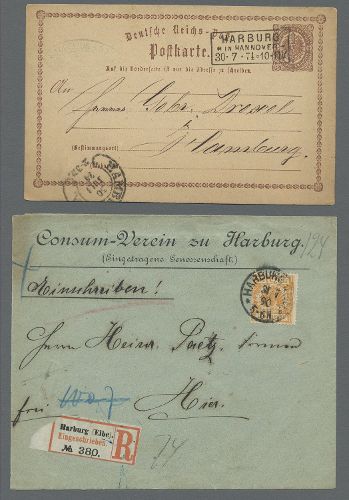 Deutsche Reichs-Post
Postkarte.
HARBURG
IN HANNOVER
30·7·74·10-11V
Auf die Vorderseite ist nur die Adresse zu schreiben.
An
Herren Gebr. Drexel
Hamburg.
(Bestimmungsort)
HAMB
Consum-Verein zu Harburg.
124
(Eingetragene Genossenschaft.)
HARBURG
Einschreiben!
Herrn Heinr. Paetz,
frei
Hier.
Harburg (Elbe).
Eingeschrieben.
№ 380.
R